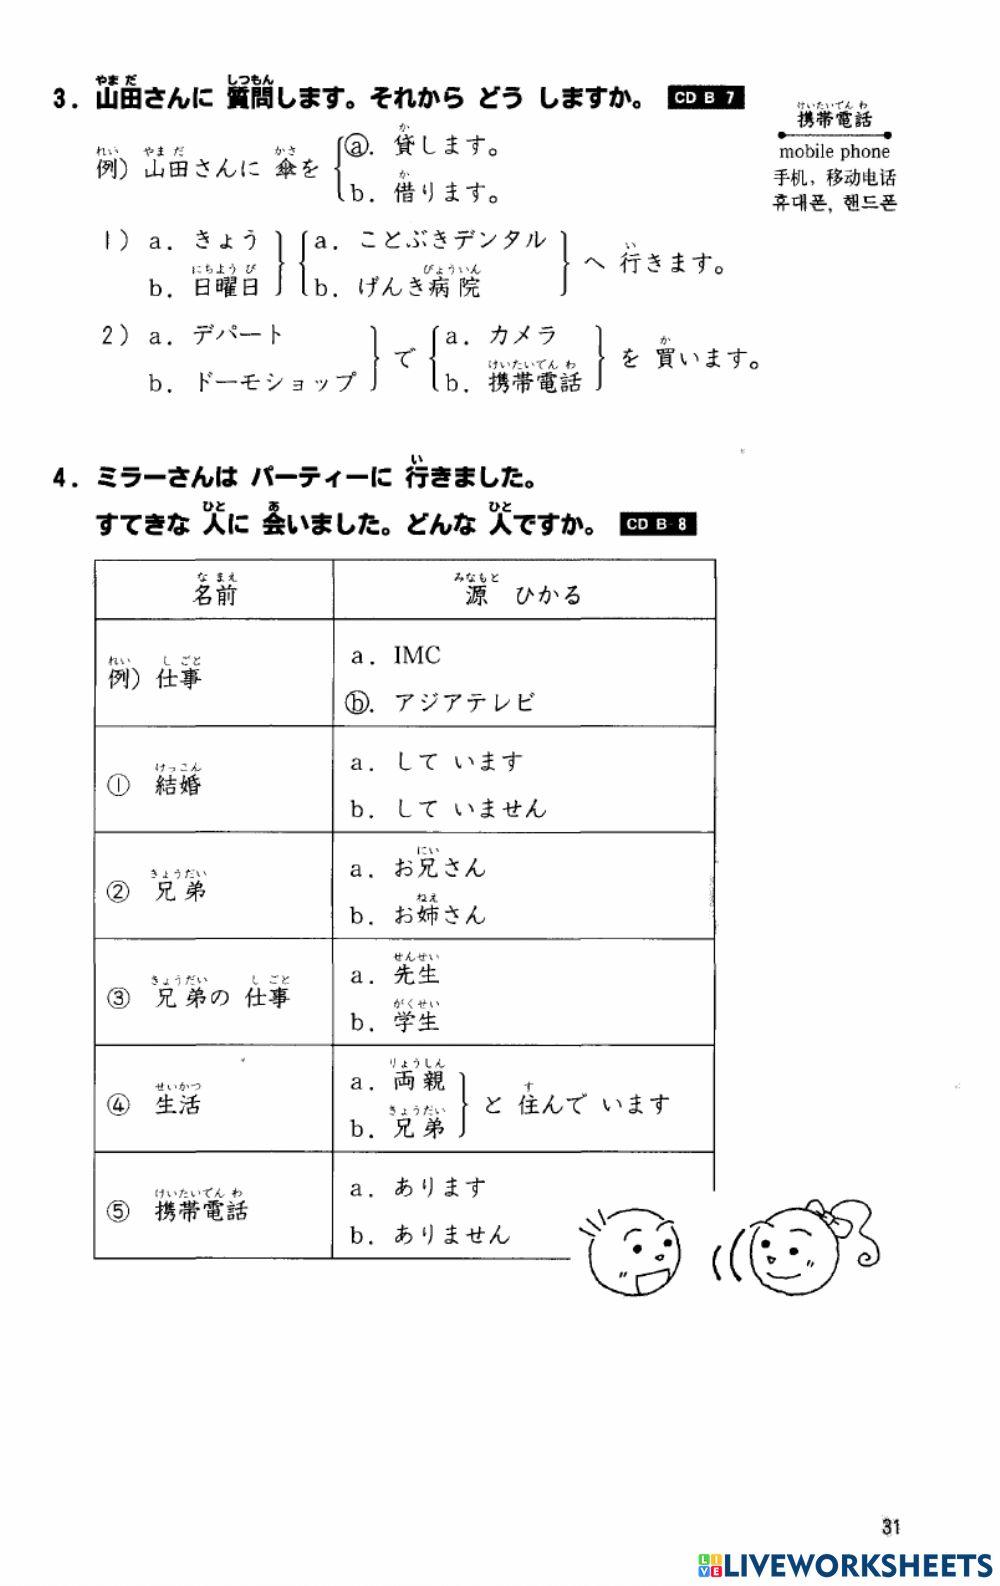 3. 山田さんに 質問します。それから どう しますか。 CD B 7
やま だ しつもん
けいたいでん わ
携帯電話
mobile phone
手机，移动电话
휴대폰, 핸드폰
れい やま だ かさ
例）山田さんに 傘を
か
ⓐ. 貸します。
か
b. 借ります。
1） a. きょう
にちよう び
b. 日曜日
a. ことぶきデンタル
びょういん
b. げんき病院
い
へ 行きます。
2） a. デパート
b. ドーモショップ
で
a. カメラ
けいたいでん わ
b. 携帯電話
か
を 買います。
い
4. ミラーさんは パーティーに 行きました。
ひと あ ひと
すてきな 人に 会いました。どんな 人ですか。 CD B-8
な まえ みなもと
名前 源 ひかる
れい し ごと
例）仕事
a. IMC
ⓑ. アジアテレビ
けっこん
① 結婚
a. して います
b. して いません
きょうだい
② 兄弟
にい
a. お兄さん
ねえ
b. お姉さん
きょうだい し ごと
③ 兄弟の 仕事
せんせい
a. 先生
がくせい
b. 学生
せいかつ
④ 生活
りょうしん
a. 両親
きょうだい
b. 兄弟
す
と 住んで います
けいたいでん わ
⑤ 携帯電話
a. あります
b. ありません
31
LIVEWORKSHEETS